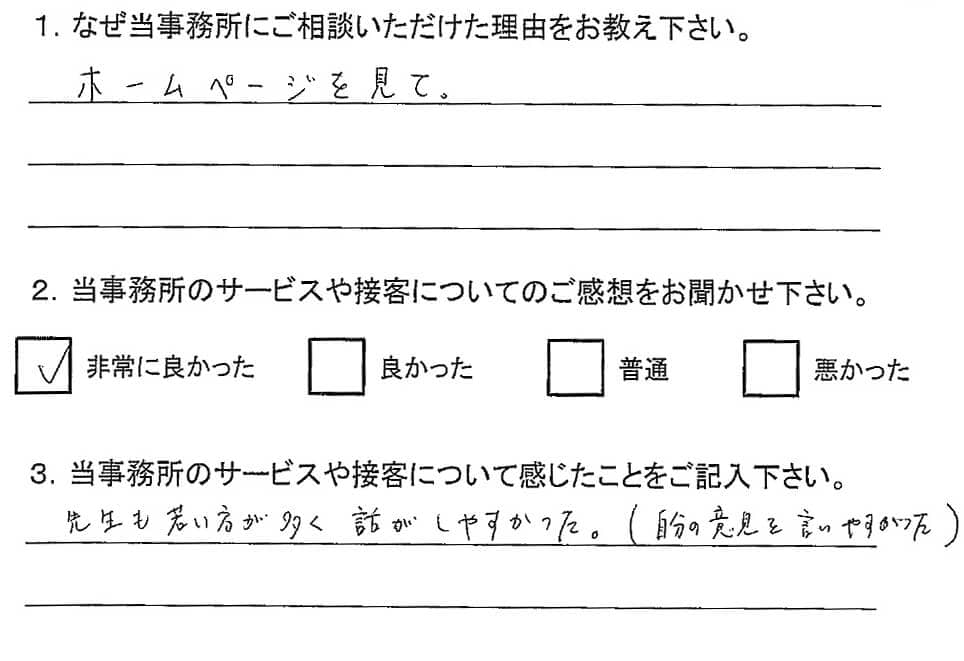 1. なぜ当事務所にご相談いただけた理由をお教え下さい。
ホームページを見て。
2. 当事務所のサービスや接客についてのご感想をお聞かせ下さい。
非常に良かった 良かった 普通 悪かった
3. 当事務所のサービスや接客について感じたことをご記入下さい。
先生も若い方が多く話がしやすかった。(自分の意見を言いやすかった)